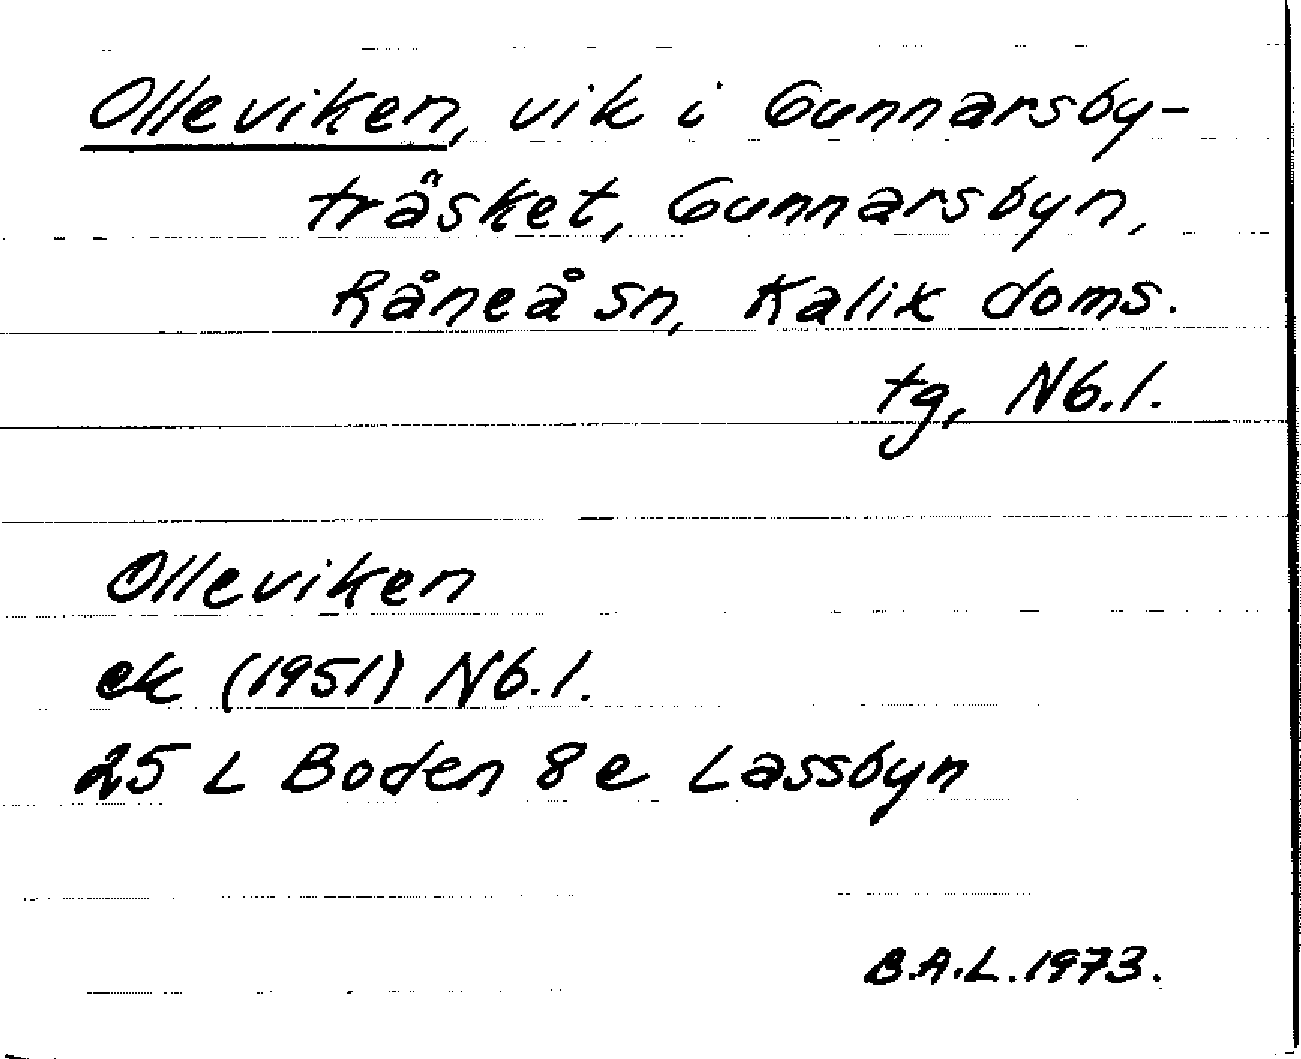 Olleviken, vik i Gunnarsby-
träsket, Gunnarsbyn,
Råneå sn, Kalix doms.
tg, Nb.l.
Olleviken
ek (1951) Nb.l.
25 L Boden 8e Lassbyn
B.A.L. 1973.